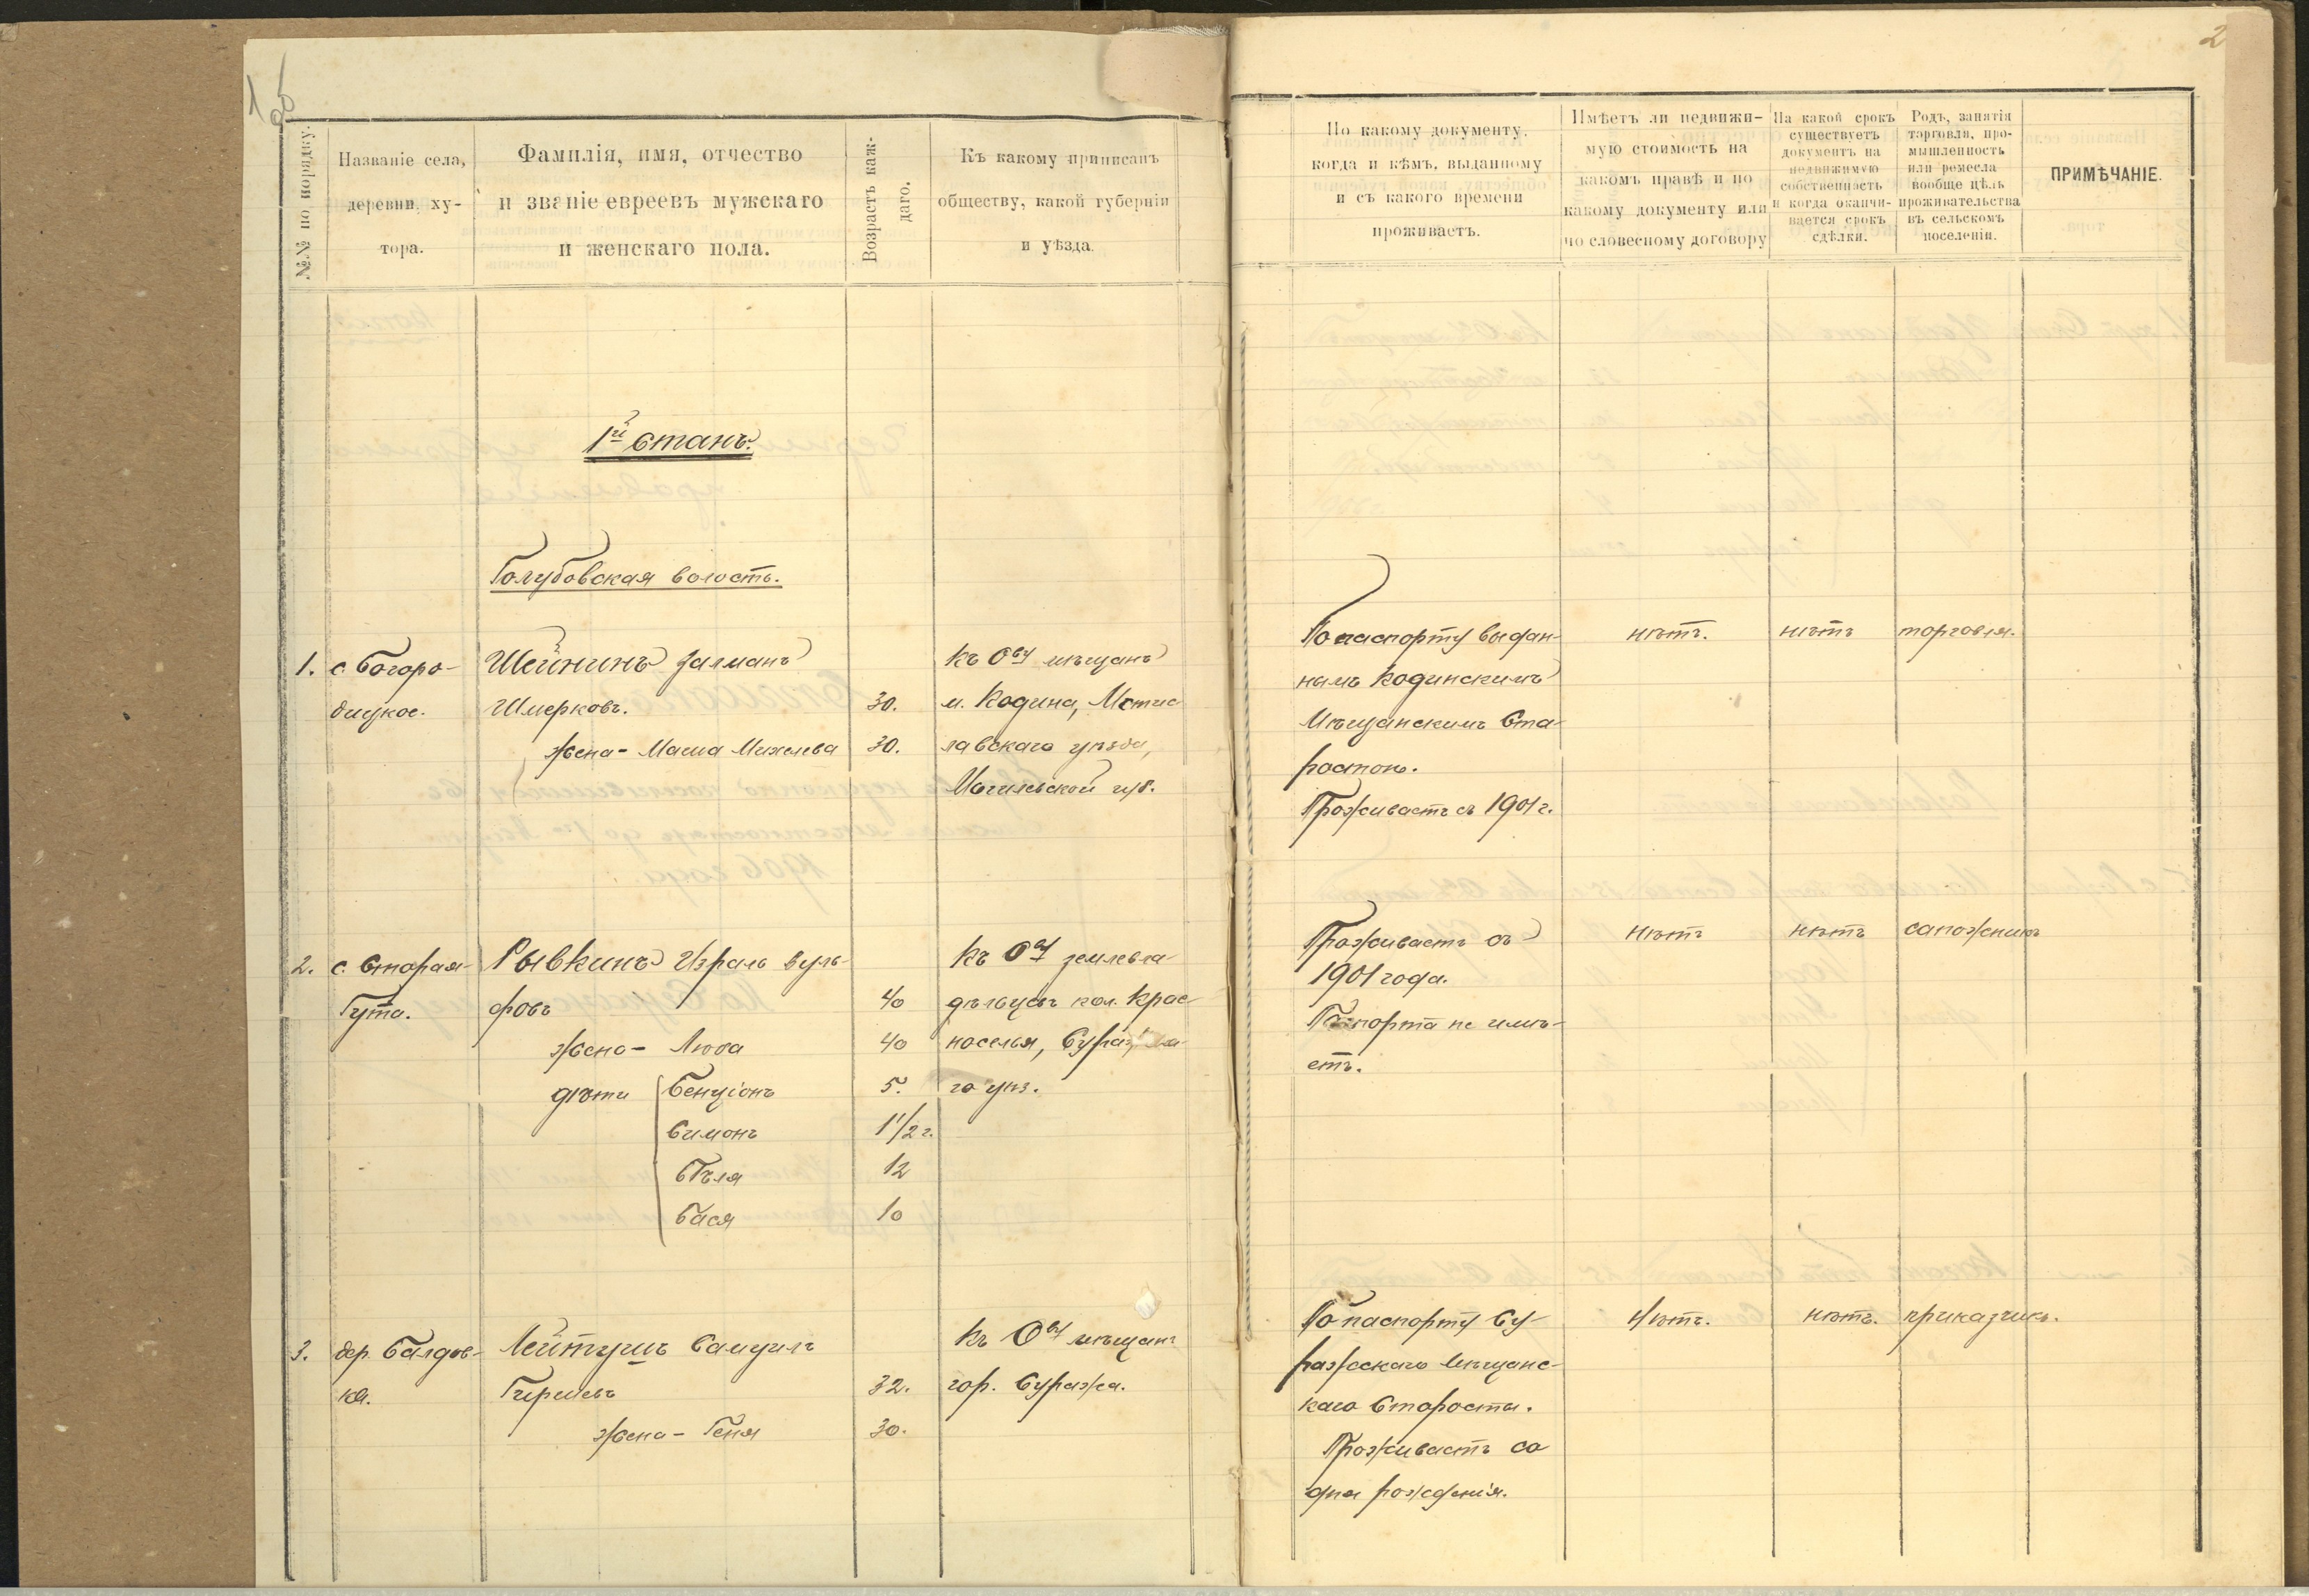 1 об
2
№№ по порядку.
Названіе села,
деревни, ху-
тора.
Фамилія, имя, отчество
и званіе евреевъ мужскаго
и женскаго пола.
Возрастъ каж-
даго.
Къ какому приписанъ
обществу, какой губерніи
и уѣзда.
По какому документу,
когда и кѣмъ, выданному
и съ какого времени
проживаетъ.
Имѣетъ ли недвижи-
мую стоимость на
какомъ правѣ и по
какому документу или
по словесному договору
На какой срокъ
существуетъ
документъ на
недвижимую
собственность
и когда оканчи-
вается срокъ
сдѣлки.
Родъ, занятія
торговля, про-
мышленность
или ремесла
вообще цѣль
проживательства
въ сельскомъ
поселеніи.
ПРИМѢЧАНІЕ.
1й Станъ.
Голубовская волость.
1.
с. Богоро-
дицкое.
Шейнинъ Залманъ
Шмерковъ.
жена - Маша Михелева
30.
30.
къ Ову мѣщанъ
м. Кодина, Мстис
лавскаго уѣзда,
Могилевской губ.
По паспорту выдан-
нымъ Кодинскимъ
Мѣщанскимъ Ста-
ростою.
Проживаетъ съ 1901 г.
нѣтъ.
нѣтъ
торговля.
2.
с. Старая-
Гута.
Рывкинъ Израль Вуль-
фовъ
жена - Люба
дѣти Бенціонъ
Симонъ
Бѣля
Бася
40
40
5.
1 1/2 г.
12
10
къ Ову землевла-
дѣльцевъ кол. Крас-
носелья, Суражска-
го уѣз.
Проживаетъ съ
1901 года.
Паспорта не имѣ-
етъ.
нѣтъ
нѣтъ
сапожникъ
3.
дер. Балдов-
ка.
Лейтушъ Самуилъ
Гиршевъ
жена - Геня
32.
30.
къ Ову мѣщанъ
гор. Суража.
По паспорту Су-
ражскаго Мѣщанс-
каго Старосты.
Проживаетъ со
дня рожденія.
Нѣтъ.
нѣтъ.
приказчикъ.